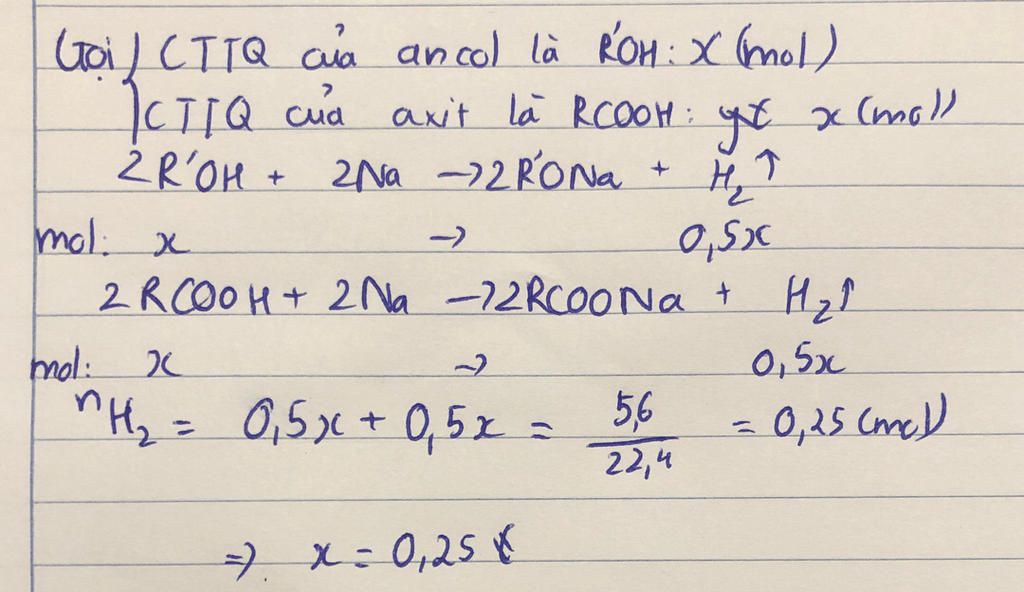 Gọi CTTQ của ancol là R'OH: x (mol)
CTTQ của axit là RCOOH: x (mol)
2R'OH + 2Na → 2R'ONa + H₂↑
mol: x → 0,5x
2RCOOH + 2Na → 2RCOONa + H₂↑
mol: x → 0,5x
nH₂ = 0,5x + 0,5x = 5,6/22,4 = 0,25 (mol)
⇒ x = 0,25